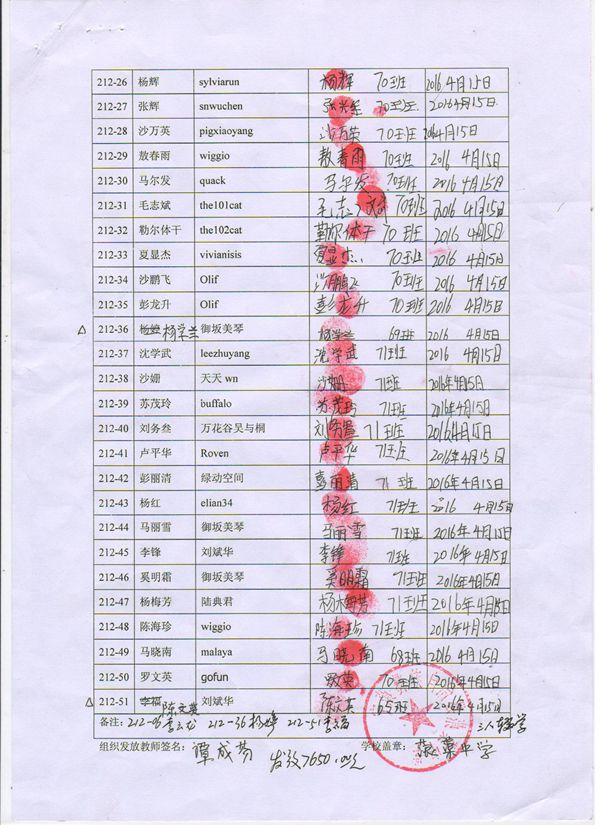 212-26 杨辉 sylviarun 杨辉 70班 2016 4月15日
212-27 张辉 snwuchen 70班 2016 4月15日
212-28 沙万英 pigxiaoyang 沙万英 70班 2016 4月15日
212-29 敖春雨 wiggio 敖春雨 70班 2016 4月15日
212-30 马尔发 quack 马尔发 70班 2016 4月15日
212-31 毛志斌 the101cat 毛志斌 70班 2016 4月15日
212-32 勒尔体干 the102cat 勒尔体干 70班 2016 4月15日
212-33 夏显杰 vivianisis 夏显杰 70班 2016 4月15日
212-34 沙鹏飞 Olif 沙鹏飞 70班 2016 4月15日
212-35 彭龙升 Olif 彭龙升 70班 2016 4月15日
△ 212-36 杨婷 杨学兰 御坂美琴 杨学兰 69班 2016 4月15日
212-37 沈学武 leezhuyang 沈学武 71班 2016 4月15日
212-38 沙姗 天天 wn 沙姗 71班 2016年4月15日
212-39 苏茂玲 buffalo 苏茂玲 71班 2016年4月15日
212-40 刘务叁 万花谷吴与桐 刘务叁 71班 2016年4月15日
212-41 卢平华 Roven 卢平华 71班 2016年4月15日
212-42 彭丽清 绿动空间 彭丽清 71班 2016年4月15日
212-43 杨红 elian34 杨红 71班 2016 4月15日
212-44 马丽雪 御坂美琴 马丽雪 71班 2016年4月15日
212-45 李锋 刘斌华 李锋 71班 2016年4月15日
212-46 奚明霜 御坂美琴 奚明霜 71班 2016年4月15日
212-47 杨梅芳 陆典君 杨梅芳 71班 2016年4月15日
212-48 陈海珍 wiggio 陈海珍 71班 2016年4月15日
212-49 马晓南 malaya 马晓南 68班 2016 4月15日
212-50 罗文英 gofun 70班 2016年4月15日
△ 212-51 李福 陈文英 刘斌华 陈文英 65班 2016年4月15日
备注: 212-36杨婷 212-51李福 三人辍学
组织发放教师签名: 谭成芬 发放7650.00元 学校盖章: 中学